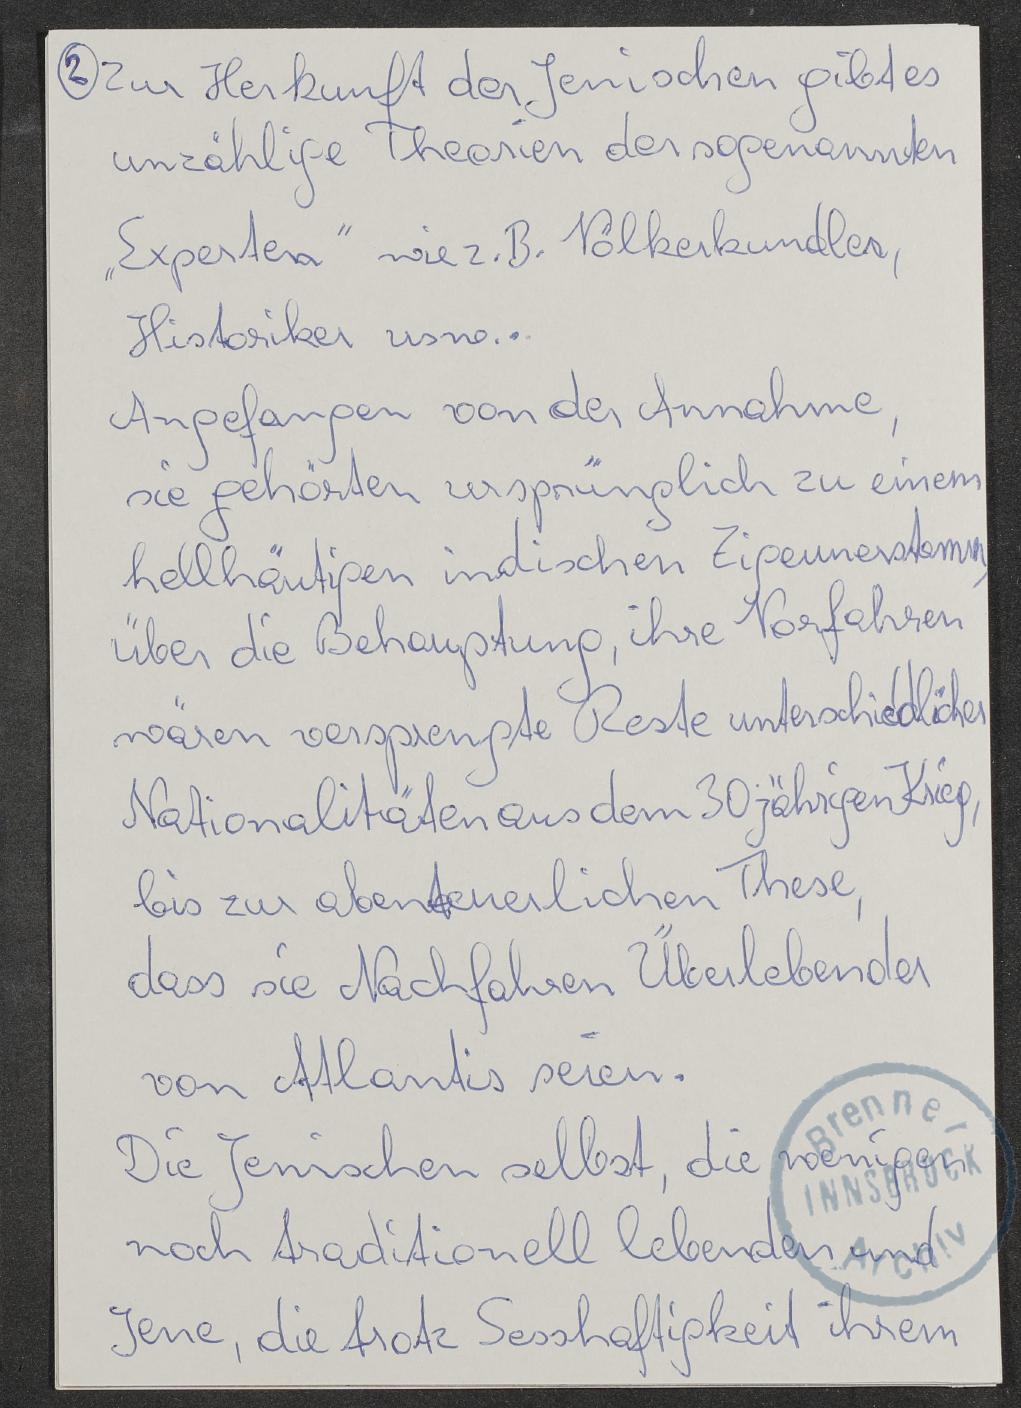 ② Zur Herkunft der Jenischen gibt es
unzählige Theorien der sogenannten
„Experten" wie z. B. Völkerkundler,
Historiker usw...
Angefangen von der Annahme,
sie gehörten ursprünglich zu einem
hellhäutigen indischen Zigeunerstamm,
über die Behauptung, ihre Vorfahren
wären versprengte Reste unterschiedlicher
Nationalitäten aus dem 30jährigen Krieg,
bis zur abenteuerlichen These,
dass sie Nachfahren Überlebender
von Atlantis seien.
Die Jenischen selbst, die wenigen
noch traditionell lebenden und
Jene, die trotz Sesshaftigkeit ihrem
Brenner
INNSBRUCK
Archiv